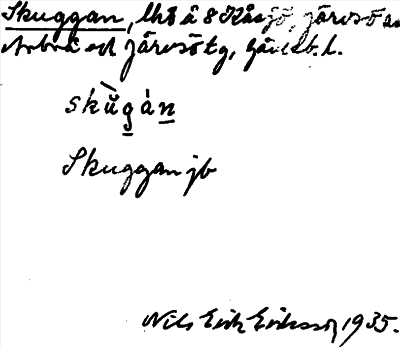 Skuggan, lht å 8 Kåsjö, Järvsö
Arbrå och Järvsö tg, Gävleb. l.
skùgàn
Skuggan jb
Nils Erik Eriksson 1935.